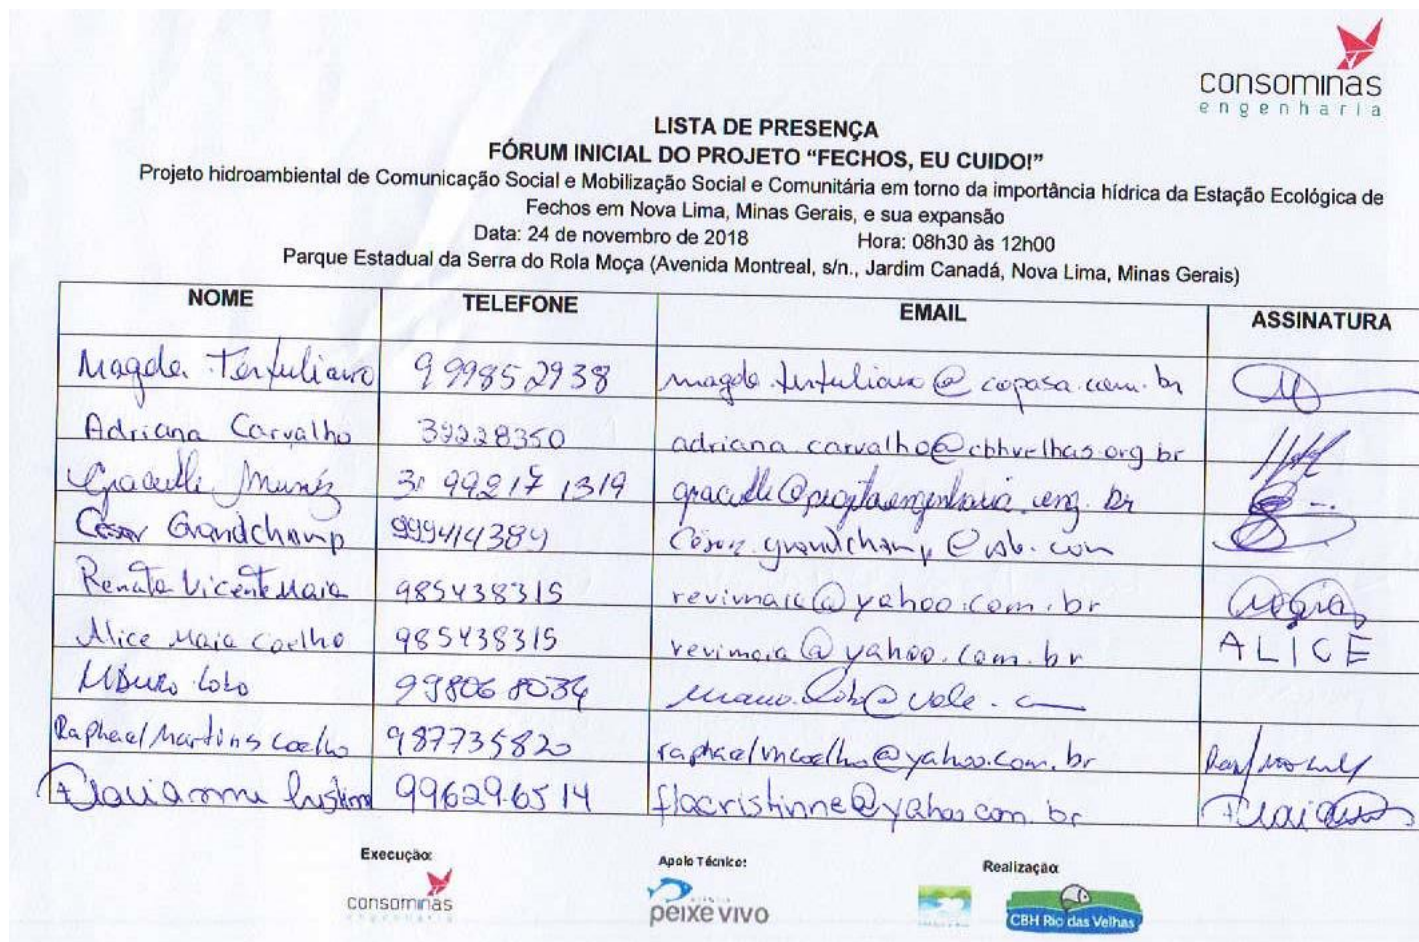 consominas
engenharia
LISTA DE PRESENÇA
FÓRUM INICIAL DO PROJETO “FECHOS, EU CUIDO!”
Projeto hidroambiental de Comunicação Social e Mobilização Social e Comunitária em torno da importância hídrica da Estação Ecológica de
Fechos em Nova Lima, Minas Gerais, e sua expansão
Data: 24 de novembro de 2018 Hora: 08h30 às 12h00
Parque Estadual da Serra do Rola Moça (Avenida Montreal, s/n., Jardim Canadá, Nova Lima, Minas Gerais)
NOME TELEFONE EMAIL ASSINATURA
Magda Tertuliano 999852938 magda.tertuliano@copasa.com.br
Adriana Carvalho 32228350 adriana.carvalho@cbhvelhas.org.br
31 99217 1319
César Grandchamp 999414384 Cesar.grandchamp@
Renata Vicente Maia 985438315 revimaia@yahoo.com.br
Alice Maia Coelho 985438315 revimaia@yahoo.com.br ALICE
Lobo 998068034
Raphael Martins Coelho 987735820 raphaelmcoelho@yahoo.com.br
99629.6514 flacristinne@yahoo.com.br
Execução: Apoio Técnico: Realização:
consominas
engenharia
peixe vivo
CBH Rio das Velhas